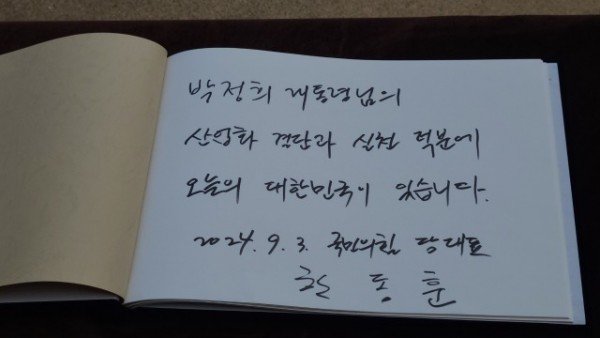 박정희 대통령님의
산업화 결단과 실천 덕분에
오늘의 대한민국이 있습니다.
2024. 9. 3. 국민의힘 당대표
한동훈